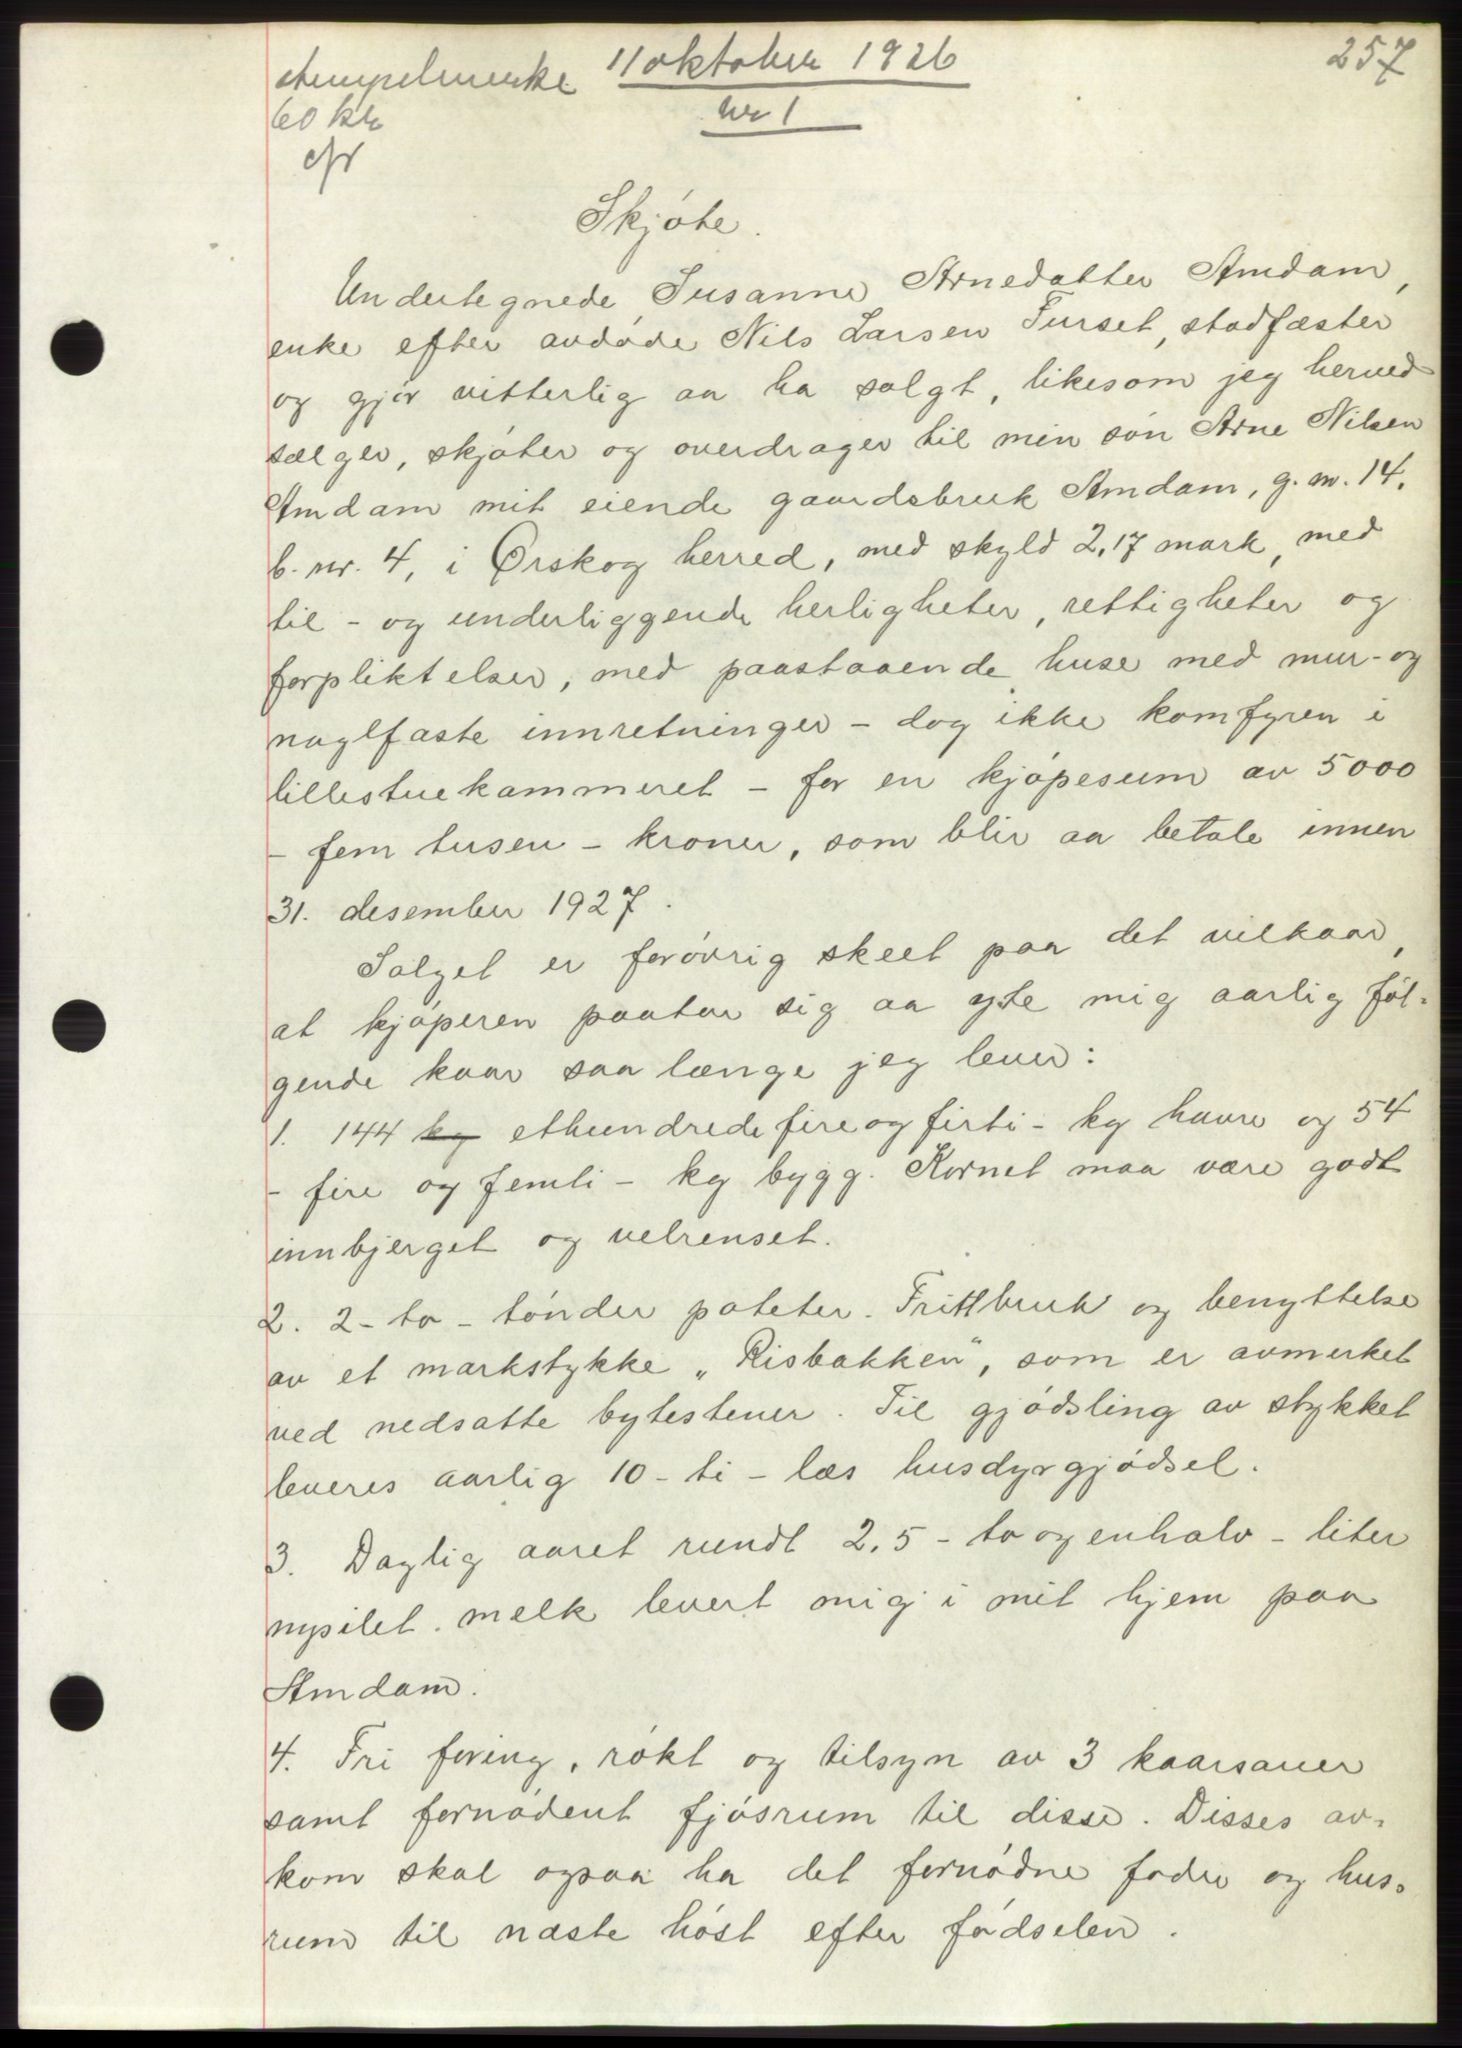 257
11 oktober 1926
stempelmerke
60 kr
nr 1
Skjóte.
Undertegnede Susanne Arnedatter Amdam,
enke efter avdøde Nils Larsen Furset, stadfæster
og gjør vitterlig aa ha solgt, likesom jeg herved
sælger, skjøter og overdrager til min søn Arne Nilsen
Amdam mit eiende gaardsbruk Amdam, g. nr. 14,
b. nr. 4, i Ørskog herred, med skyld 2,17 mark, med
til- og underliggende herligheter, rettigheter og
forpliktelser, med paastaaende huse med mur- og
naglfaste innretninger - dog ikke komfyren i
lillestuekammeret - for en kjøpesum av 5000
- fem tusen - kroner, som blir aa betale innen
31. desember 1927.
Salget er forøvrig skeet paa det vilkaar,
at kjøperen paatar sig aa yte mig aarlig føl-
gende kaar saa længe jeg lever:
1. 144 kg ethundrede fire og firti - kg havre og 54
- fire og femti - kg bygg. Kornet maa være godt
innbjerget og velrenset.
2. 2 - to - tønder poteter. Fritt bruk og benyttelse
av et markstykke „Risbakken", som er avmerket
ved nedsatte bytestener. Til gjødsling av stykket
leveres aarlig 10 - ti - læs husdyrgjødsel.
3. Daglig aaret rundt 2,5 - to og en halv - liter
nysilet melk levert mig i mit hjem paa
Amdam.
4. Fri foring, røkt og tilsyn av 3 kaarsauer
samt fornødent fjøsrum til disse. Disses av-
kom skal ogsaa ha det fornødne foder og hus-
rum til næste høst efter fødselen.